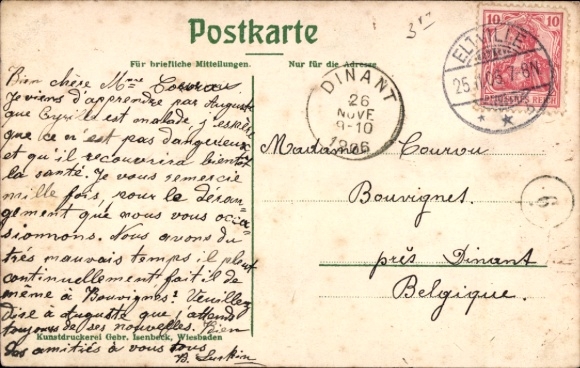 Postkarte
Für briefliche Mitteilungen.
Nur für die Adresse.
Bien chère Mme Courou
Je viens d'apprendre par Auguste
que Cyrille est malade j'espère
que ce n'est pas dangereux
et qu'il recouvrira bientôt
la santé. Je vous remercie
mille fois, pour le déran-
gement que nous vous occa-
sionnons. Nous avons du
très mauvais temps il pleut
continuellement fait il de
même à Bouvignes? Veuillez
dire à Auguste que j'attends
toujours de ses nouvelles. Bien
des amitiés à vous tous
B.
Kunstdruckerei Gebr. Isenbeck, Wiesbaden
10 10
DEUTSCHES REICH
ELTVILLE
7-8N
DINANT
26
NOVE
9-10
1906
Madame Courou
Bouvignes.
près Dinant
Belgique.
6